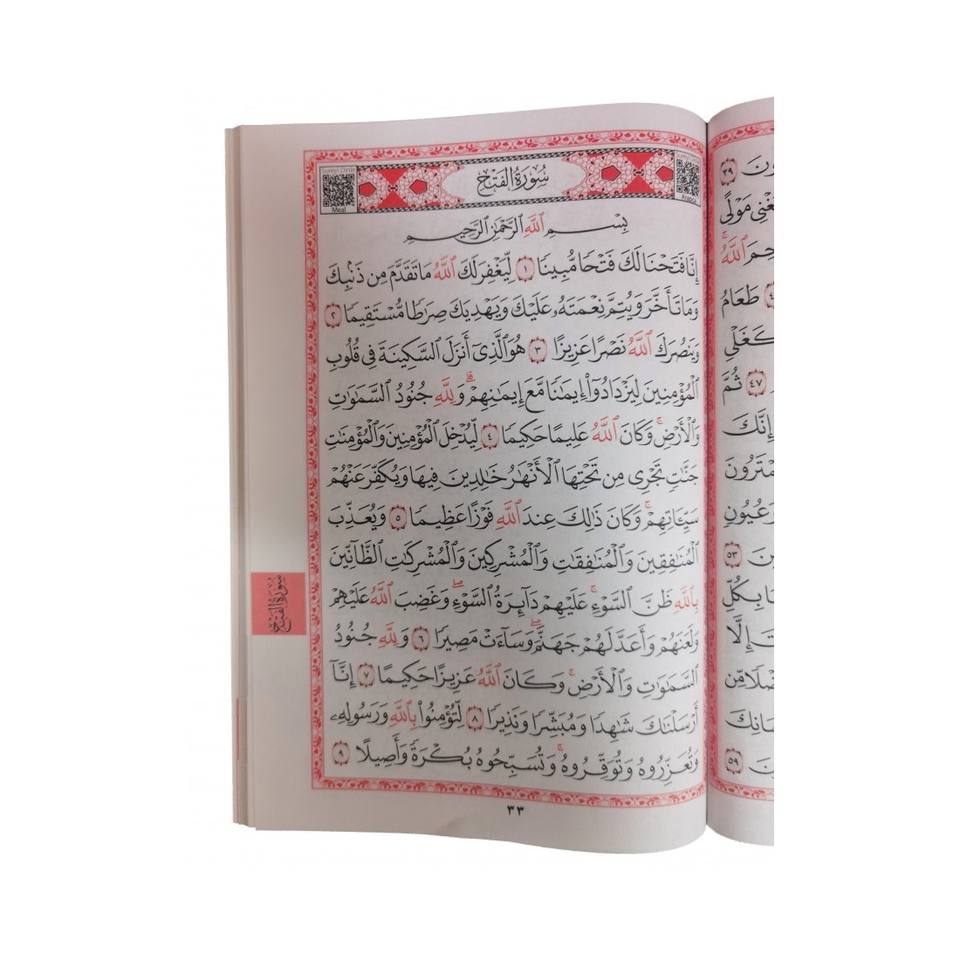 سُورَةُ الفَتْحِ
Meal
بِسْمِ ٱللَّهِ ٱلرَّحْمَٰنِ ٱلرَّحِيمِ
إِنَّا فَتَحْنَا لَكَ فَتْحًا مُّبِينًا ﴿١﴾ لِّيَغْفِرَ لَكَ ٱللَّهُ مَا تَقَدَّمَ مِن ذَنۢبِكَ
وَمَا تَأَخَّرَ وَيُتِمَّ نِعْمَتَهُۥ عَلَيْكَ وَيَهْدِيَكَ صِرَٰطًا مُّسْتَقِيمًا ﴿٢﴾
وَيَنصُرَكَ ٱللَّهُ نَصْرًا عَزِيزًا ﴿٣﴾ هُوَ ٱلَّذِىٓ أَنزَلَ ٱلسَّكِينَةَ فِى قُلُوبِ
ٱلْمُؤْمِنِينَ لِيَزْدَادُوٓا۟ إِيمَٰنًا مَّعَ إِيمَٰنِهِمْ ۗ وَلِلَّهِ جُنُودُ ٱلسَّمَٰوَٰتِ
وَٱلْأَرْضِ ۚ وَكَانَ ٱللَّهُ عَلِيمًا حَكِيمًا ﴿٤﴾ لِّيُدْخِلَ ٱلْمُؤْمِنِينَ وَٱلْمُؤْمِنَٰتِ
جَنَّٰتٍ تَجْرِى مِن تَحْتِهَا ٱلْأَنْهَٰرُ خَٰلِدِينَ فِيهَا وَيُكَفِّرَ عَنْهُمْ
سَيِّـَٔاتِهِمْ ۚ وَكَانَ ذَٰلِكَ عِندَ ٱللَّهِ فَوْزًا عَظِيمًا ﴿٥﴾ وَيُعَذِّبَ
ٱلْمُنَٰفِقِينَ وَٱلْمُنَٰفِقَٰتِ وَٱلْمُشْرِكِينَ وَٱلْمُشْرِكَٰتِ ٱلظَّآنِّينَ
بِٱللَّهِ ظَنَّ ٱلسَّوْءِ ۚ عَلَيْهِمْ دَآئِرَةُ ٱلسَّوْءِ ۖ وَغَضِبَ ٱللَّهُ عَلَيْهِمْ
وَلَعَنَهُمْ وَأَعَدَّ لَهُمْ جَهَنَّمَ ۖ وَسَآءَتْ مَصِيرًا ﴿٦﴾ وَلِلَّهِ جُنُودُ
ٱلسَّمَٰوَٰتِ وَٱلْأَرْضِ ۚ وَكَانَ ٱللَّهُ عَزِيزًا حَكِيمًا ﴿٧﴾ إِنَّآ
أَرْسَلْنَٰكَ شَٰهِدًا وَمُبَشِّرًا وَنَذِيرًا ﴿٨﴾ لِّتُؤْمِنُوا۟ بِٱللَّهِ وَرَسُولِهِۦ
وَتُعَزِّرُوهُ وَتُوَقِّرُوهُ ۚ وَتُسَبِّحُوهُ بُكْرَةً وَأَصِيلًا ﴿٩﴾
٣٣
سُورَةُ الفَتْحِ
﴿٣٩﴾
مَوْلًى
ٱللَّهُ
طَعَامُ
كَغَلْىِ
﴿٤٧﴾ ثُمَّ
إِنَّكَ
﴿٥٣﴾
بِكُلِّ
إِلَّا
﴿٥٩﴾